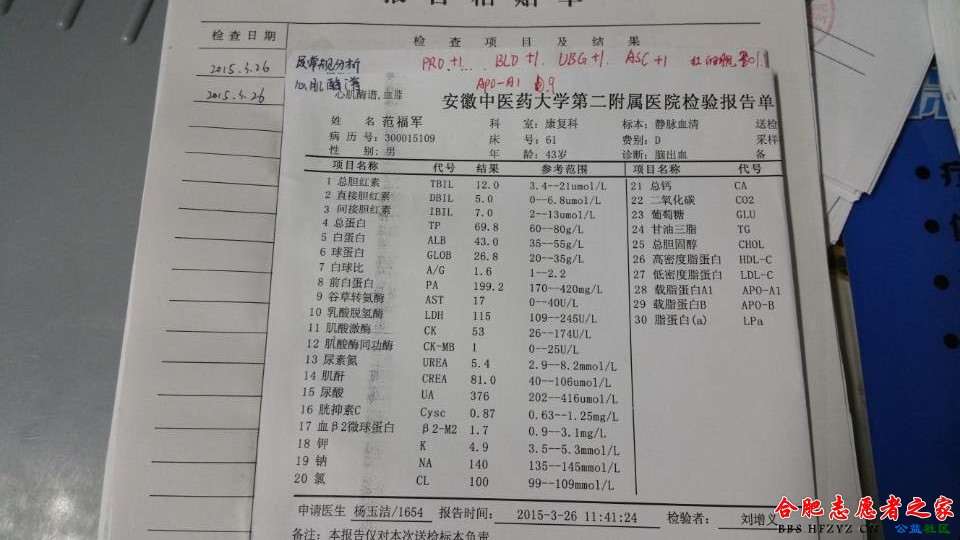 报告粘贴单
检查日期
检查项目及结果
2015.3.26
尿常规分析 PRO +1. BLD +1. UBG +1. ASC +1
2015.3.26
APO-A1 0.9
心肌酶谱,血脂
安徽中医药大学第二附属医院检验报告单
姓 名 范福军 科 室：康复科 标本：静脉血清 送检
病 历 号：300015109 床 号：61 费别：D 采样
性 别：男 年 龄：43岁 诊断：脑出血 备
项目名称 代号 结果 参考范围 项目名称 代号
1 总胆红素 TBIL 12.0 3.4--21umol/L 21 总钙 CA
2 直接胆红素 DBIL 5.0 0--6.8umol/L 22 二氧化碳 CO2
3 间接胆红素 IBIL 7.0 2--13umol/L 23 葡萄糖 GLU
4 总蛋白 TP 69.8 60--80g/L 24 甘油三脂 TG
5 白蛋白 ALB 43.0 35--55g/L 25 总胆固醇 CHOL
6 球蛋白 GLOB 26.8 20--35g/L 26 高密度脂蛋白 HDL-C
7 白球比 A/G 1.6 1--2.2 27 低密度脂蛋白 LDL-C
8 前白蛋白 PA 199.2 170--420mg/L 28 载脂蛋白A1 APO-A1
9 谷草转氨酶 AST 17 0--40U/L 29 载脂蛋白B APO-B
10 乳酸脱氢酶 LDH 115 109--245U/L 30 脂蛋白(a) LPa
11 肌酸激酶 CK 53 26--174U/L
12 肌酸酶同功酶 CK-MB 1 0--25U/L
13 尿素氮 UREA 5.4 2.9--8.2mmol/L
14 肌酐 CREA 81.0 40--106umol/L
15 尿酸 UA 376 202--416umol/L
16 胱抑素C Cysc 0.87 0.63--1.25mg/L
17 血β2微球蛋白 β2-M2 1.7 0.9--3.1mg/L
18 钾 K 4.9 3.5--5.3mmol/L
19 钠 NA 140 135--145mmol/L
20 氯 CL 100 99--109mmol/L
申请医生 杨玉洁/1654 报告时间： 2015-3-26 11:41:24 检验者： 刘增义
备注：本报告仅对本次送检标本负责
合肥志愿者之家
BBS.HFZYZ.CN 公益社区